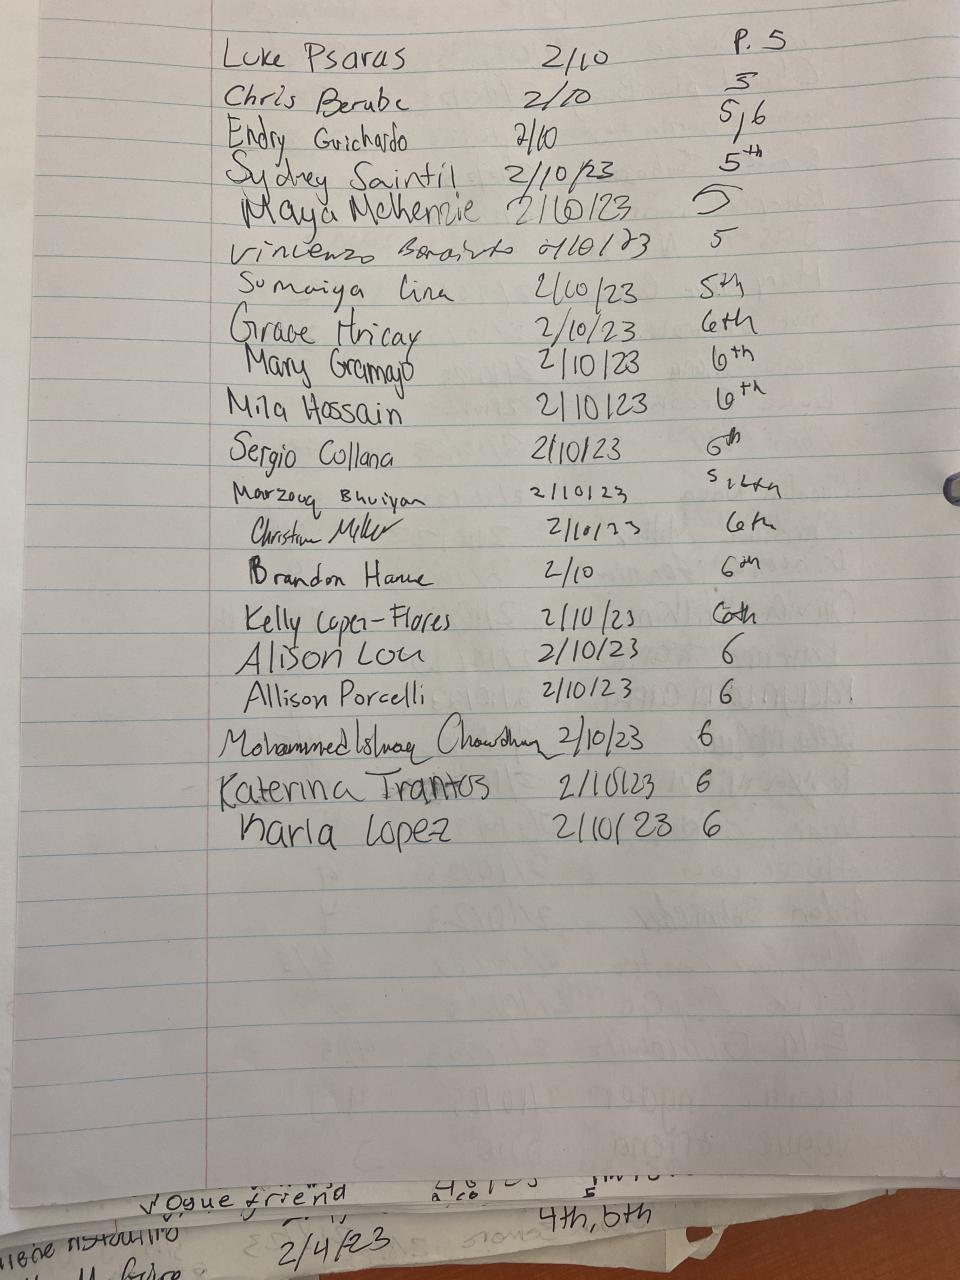 Luke Psaras 2/10 P. 5
Chris Berube 2/10 5
Endry Guichardo 2/10 5,6
Sydney Saintil 2/10/23 5th
Maya McKenzie 2/10/23 5
Vincenzo 2/10/23 5
Sumaiya 2/10/23 5th
Grace Hricay 2/10/23 6th
Mary Gramajo 2/10/23 6th
Mila Hossain 2/10/23 6th
Sergio Collana 2/10/23 6th
Marzouq Bhuiyan 2/10/23
Christian Miller 2/10/23 6th
Brandon 2/10 6th
Kelly Lopez-Flores 2/10/23 6th
Alison Lou 2/10/23 6
Allison Porcelli 2/10/23 6
Mohammed Ishraq Chowdhury 2/10/23 6
Katerina Trantos 2/10/23 6
Karla Lopez 2/10/23 6
Vogue friend
4th, 9th
2/4/23